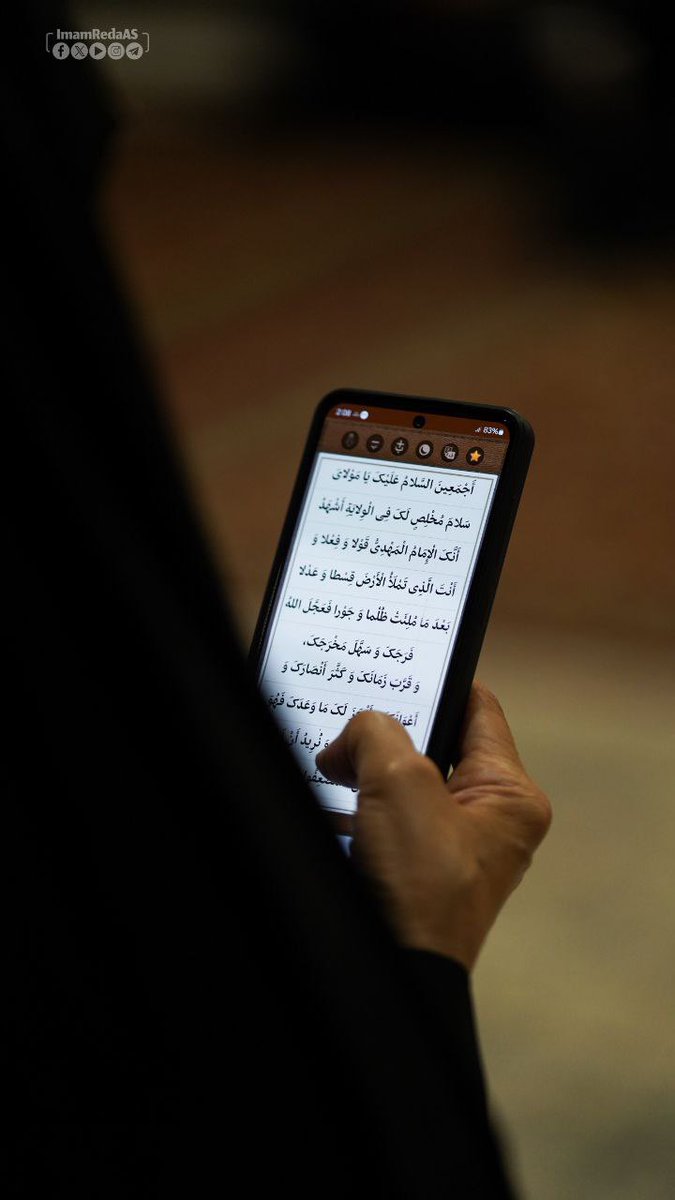 ImamRedaAS
2:08
83%
أَجْمَعِينَ السَّلامُ عَلَيْكَ يَا مَوْلايَ
سَلامَ مُخْلِصٍ لَكَ فِى الْوِلايَةِ أَشْهَدُ
أَنَّكَ الْإِمَامُ الْمَهْدِىُّ قَوْلا وَ فِعْلا وَ
أَنْتَ الَّذِى تَمْلَأُ الْأَرْضَ قِسْطا وَ عَدْلا
بَعْدَ مَا مُلِئَتْ ظُلْما وَ جَوْرا فَعَجَّلَ اللهُ
فَرَجَكَ وَ سَهَّلَ مَخْرَجَكَ،
وَ قَرَّبَ زَمَانَكَ وَ كَثَّرَ أَنْصَارَكَ وَ
لَكَ مَا وَعَدَكَ فَهُوَ
وَ نُرِيدُ أَنْ